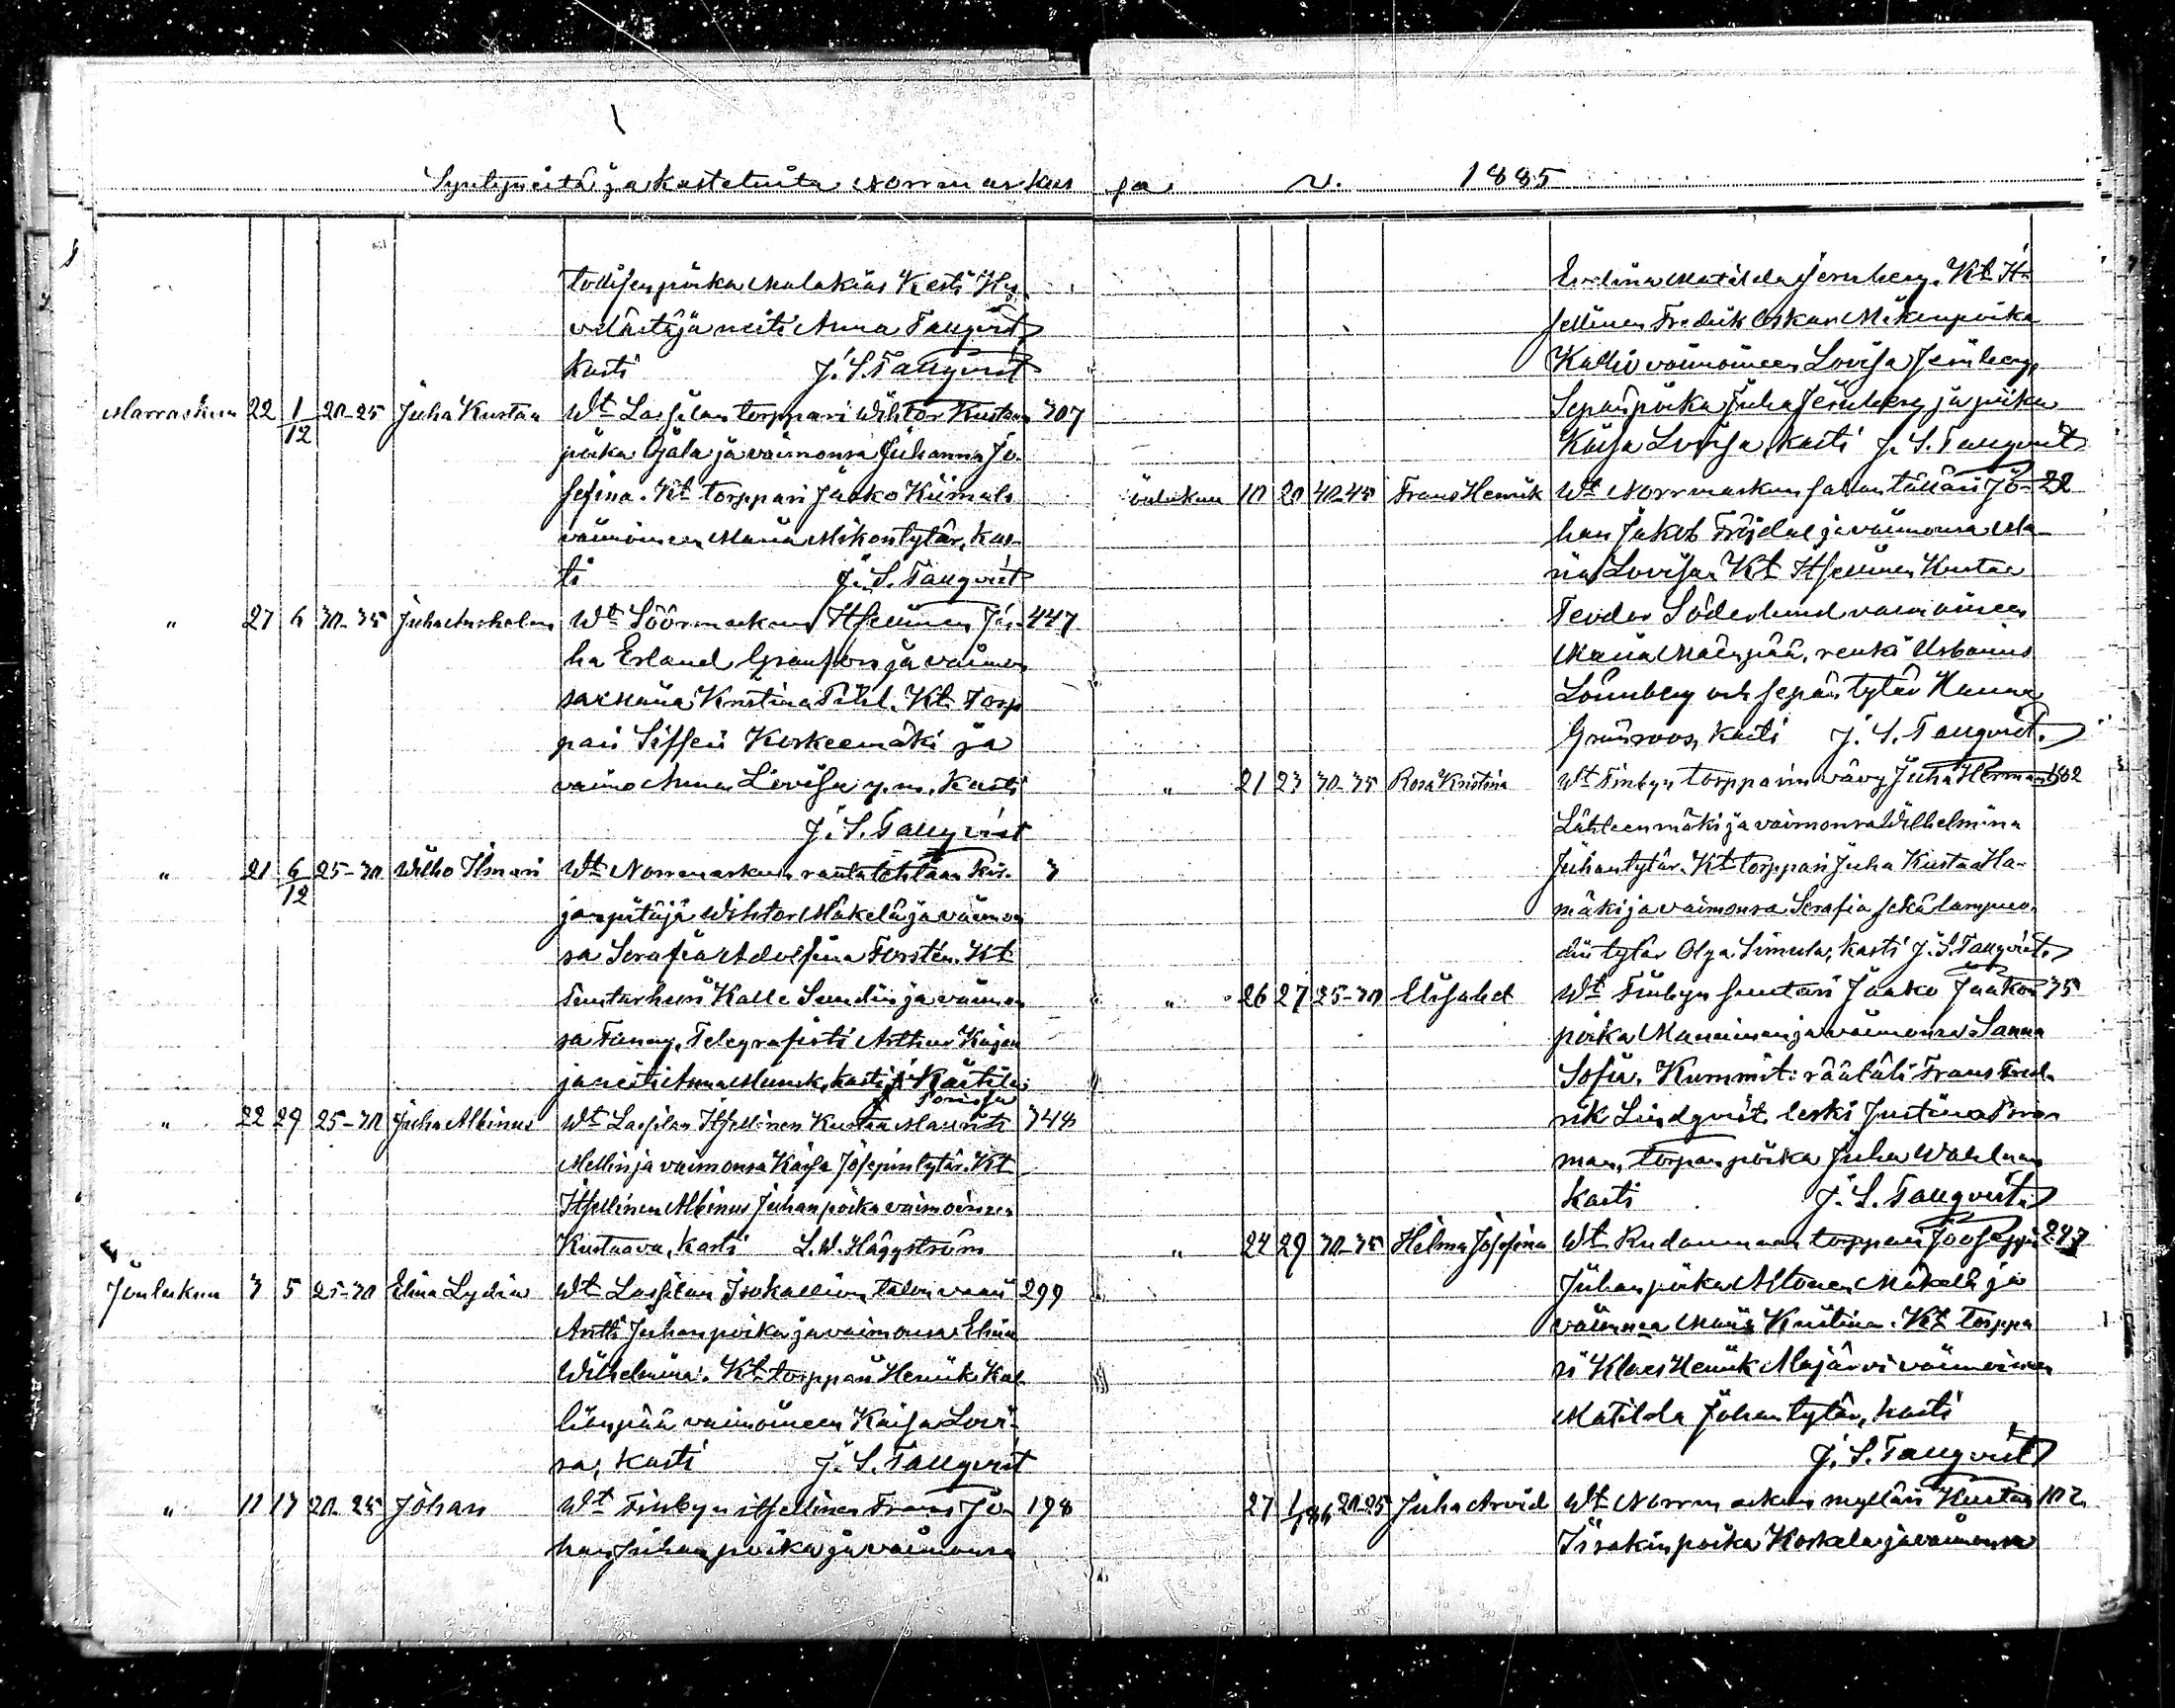 Syntyneitä ja kastetuita Norrmarkus
sa v. 1885
tollisen poika Malakias Kesti
neiti Anna Tallqvist
Kasti J. S. Tallqvist
Marraskuu 22 1/12 20-25 Juha Kustaa Wt Lassilan torppari Wihtor Kustaan 307
poika Ojala ja vaimonsa Juhanna Jo-
sefina. Kt torppari Jaako
vaimoineen Maria Mikontytär, Kas-
ti J. S. Tallqvist
" 27 6 30-35 Juha Anshelm Wt Söörmarkun Itsellinen Ju- 447
ha Erland Granfors ja vaimon
sa Maria Kristina Pihl. Kt Torp
pari Siffrei Korkeemäki ja
vaimo Anna Lovisa y.m. Kasti
J. S. Tallqvist
" 21 6/12 25-30 Wilho Ilmari Wt Norrmarkun rautatehtaan kir- 3
janpitäjä Wihtor Mäkelä ja vaimon
sa Serafia Adolfina Forstén. Kt
Kalle Sundin ja vaimon
sa Fanny, Telegrafisti Arthur
ja neiti Anna Munck, kasti
Porissa
" 22 29 25-30 Juha Albinus Wt Lassilan Itsellinen Kustaa Mauritz 344
Mellin ja vaimonsa Kaisa Josepintytär. Kt
Itsellinen Albinus Juhanpoika vaimoineen
Kustaava, Kasti L. W. Häggström
Joulukuu 3 5 25-30 Elina Lydia Wt Lassilan Isokallion talon vaari 299
Antti Juhanpoika ja vaimonsa Elina
Wilhelmina. Kt torppari Henrik Kal-
lionpää vaimoineen Kaisa Lovi-
sa, Kasti J. S. Tallqvist
" 11 17 20-25 Johan Wt Finbyn itsellinen Frans Jo- 198
han Juhanpoika ja vaimonsa
Evelina Matilda Jernberg. Kt It-
sellinen Fredrik Oskar Mikonpoika
Kallio vaimoineen Lovisa Jernberg,
Sepänpoika Juha Jernberg ja piika
Kaisa Lovisa, kasti J. S. Tallqvist
Joulukuu 10 20 40-45 Frans Henrik Wt Norrmarkun sahan Jo- 22
han Jakob Fröjdal ja vaimonsa Ma-
ria Lovisa. Kt Itsellinen Kustaa
Teodor Söderlund vaimoineen
Maria Mäenpää, renki Urbanus
Lönnberg och sepän tytär Hanna
Grönroos, kasti J. S. Tallqvist.
" 21 23 30-35 Rosa Kristina Wt Finbyn torpparin vävy Juha Herman 102
Lähteenmäki ja vaimonsa Wilhelmina
Juhantytär. Kt torppari Juha Kustaa Ha-
mäki ja vaimonsa Serafia sekä lampuo-
din tytär Olga Simula, kasti J. S. Tallqvist.
" 26 27 25-30 Elisabet Wt Finbyn suutari Jaako Jaakon 75
poika Manninen ja vaimonsa Sanna
Sofia. Kummit: räätäli Frans Fred-
rik Lindqvist, leski Justina
man, torpan poika Juha Wahlman
Kasti J. S. Tallqvist
" 24 29 30-35 Hilma Josefina Wt Rudanmaan torppari Jooseppi 247
Juhanpoika Altonen Mäkelä ja
vaimonsa Maria Kristina. Kt torppa
ri Klaes Henrik Alajärvi vaimoineen
Matilda Johantytär, kasti
J. S. Tallqvist
27 1/1 86 20-25 Juha Arvid Wt Norrmarkun mylläri Kustaa 102
Iisakinpoika Koskela ja vaimonsa